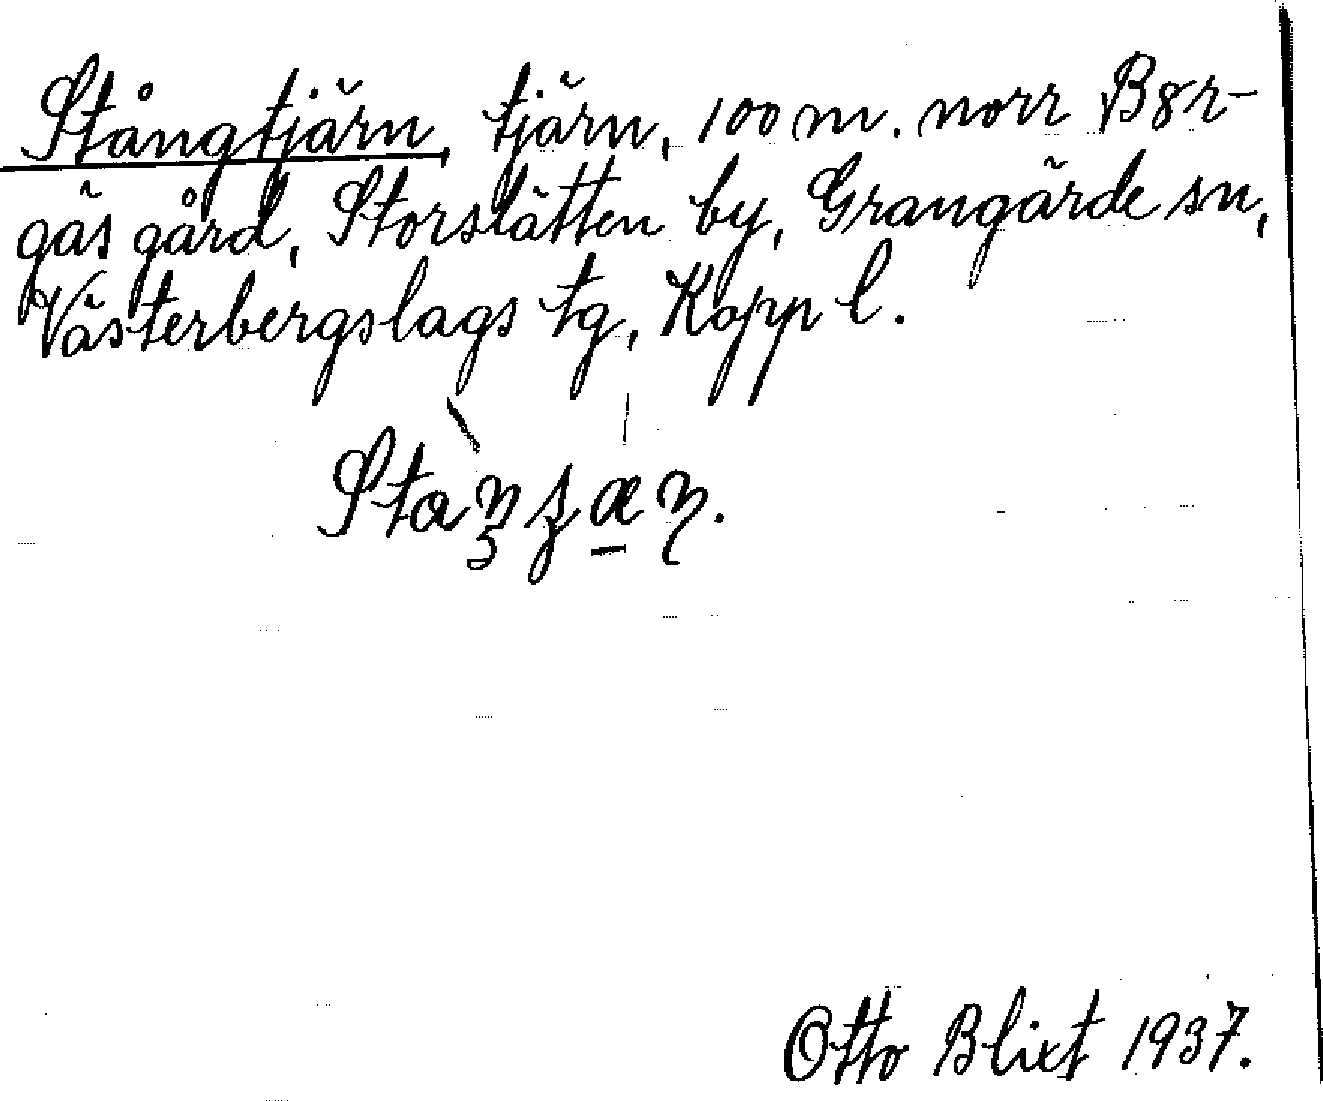 Stångtjärn, tjärn, 100 m. norr Bor-
gäs gård, Storslätten by, Grangärde sn,
Västerbergslags tg, Kopp l.
Otto Blixt 1937.